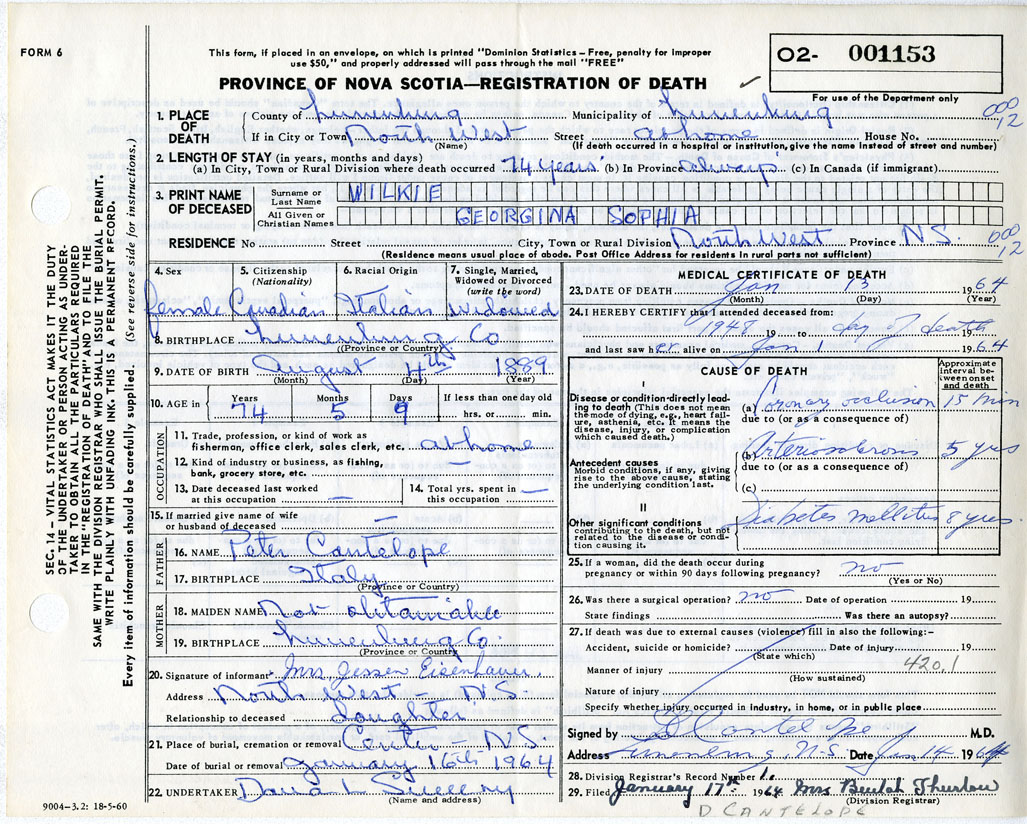 FORM 6
This form, if placed in an envelope, on which is printed "Dominion Statistics – Free, penalty for improper
use $50," and properly addressed will pass through the mail "FREE"
O2- 001153
PROVINCE OF NOVA SCOTIA—REGISTRATION OF DEATH
For use of the Department only
1. PLACE OF DEATH
County of Lunenburg Municipality of Lunenburg 000 12
If in City or Town North West Street at home House No.
(Name) (If death occurred in a hospital or institution, give the name instead of street and number)
2. LENGTH OF STAY (in years, months and days)
(a) In City, Town or Rural Division where death occurred 74 years (b) In Province always (c) In Canada (if immigrant)
3. PRINT NAME OF DECEASED
Surname or Last Name WILKIE
All Given or Christian Names GEORGINA SOPHIA
RESIDENCE No Street City, Town or Rural Division North West Province N.S. 000 12
(Residence means usual place of abode. Post Office Address for residents in rural parts not sufficient)
4. Sex female
5. Citizenship (Nationality) Canadian
6. Racial Origin Italian
7. Single, Married, Widowed or Divorced (write the word) Widowed
8. BIRTHPLACE Lunenburg Co
(Province or Country)
9. DATE OF BIRTH August 4th 1889
(Month) (Day) (Year)
10. AGE in Years 74 Months 5 Days 9 If less than one day old hrs. or min.
OCCUPATION
11. Trade, profession, or kind of work as
fisherman, office clerk, sales clerk, etc. at home
12. Kind of industry or business, as fishing,
bank, grocery store, etc. —
13. Date deceased last worked at this occupation —
14. Total yrs. spent in this occupation —
15. If married give name of wife
or husband of deceased —
FATHER
16. NAME Peter Cantelope
17. BIRTHPLACE Italy
(Province or Country)
MOTHER
18. MAIDEN NAME Not obtainable
19. BIRTHPLACE Lunenburg Co.
(Province or Country)
20. Signature of informant Mrs Jessen Eisenhauer.
Address North West – N.S.
Relationship to deceased daughter
21. Place of burial, cremation or removal Center – N.S.
Date of burial or removal January 16th 1964
22. UNDERTAKER
(Name and address)
9004-3.2: 18-5-60
MEDICAL CERTIFICATE OF DEATH
23. DATE OF DEATH Jan 13 1964
(Month) (Day) (Year)
24. I HEREBY CERTIFY that I attended deceased from:
1948 19 to day of death 19
and last saw her alive on Jan 1 1964
CAUSE OF DEATH
Approximate interval between onset and death
I
Disease or condition directly leading to death (This does not mean the mode of dying, e.g., heart failure, asthenia, etc. It means the disease, injury, or complication which caused death.)
(a) Coronary occlusion 15 min
due to (or as a consequence of)
Antecedent causes
Morbid conditions, if any, giving rise to the above cause, stating the underlying condition last.
(b) Arteriosclerosis 5 yrs
due to (or as a consequence of)
(c)
II
Other significant conditions
contributing to the death, but not related to the disease or condition causing it.
Diabetes mellitus 8 yrs.
25. If a woman, did the death occur during
pregnancy or within 90 days following pregnancy? no
(Yes or No)
26. Was there a surgical operation? no Date of operation 19
State findings Was there an autopsy?
27. If death was due to external causes (violence) fill in also the following:–
Accident, suicide or homicide? Date of injury 19
(State which)
Manner of injury 420.1
(How sustained)
Nature of injury
Specify whether injury occurred in industry, in home, or in public place
Signed by D Cantelope M.D.
Address Lunenburg, N.S. Date Jan 14 1964
28. Division Registrar's Record Number 1.
29. Filed January 17th 1964 Mrs Beulah Thurlow
(Division Registrar)
D CANTELOPE
SEC. 14 – VITAL STATISTICS ACT MAKES IT THE DUTY
OF THE UNDERTAKER OR PERSON ACTING AS UNDER-
TAKER TO OBTAIN ALL THE PARTICULARS REQUIRED
IN THE "REGISTRATION OF DEATH" AND TO FILE THE
SAME WITH THE DIVISION REGISTRAR WHO SHALL ISSUE THE BURIAL PERMIT.
WRITE PLAINLY WITH UNFADING INK. THIS IS A PERMANENT RECORD.
Every item of information should be carefully supplied. (See reverse side for instructions.)